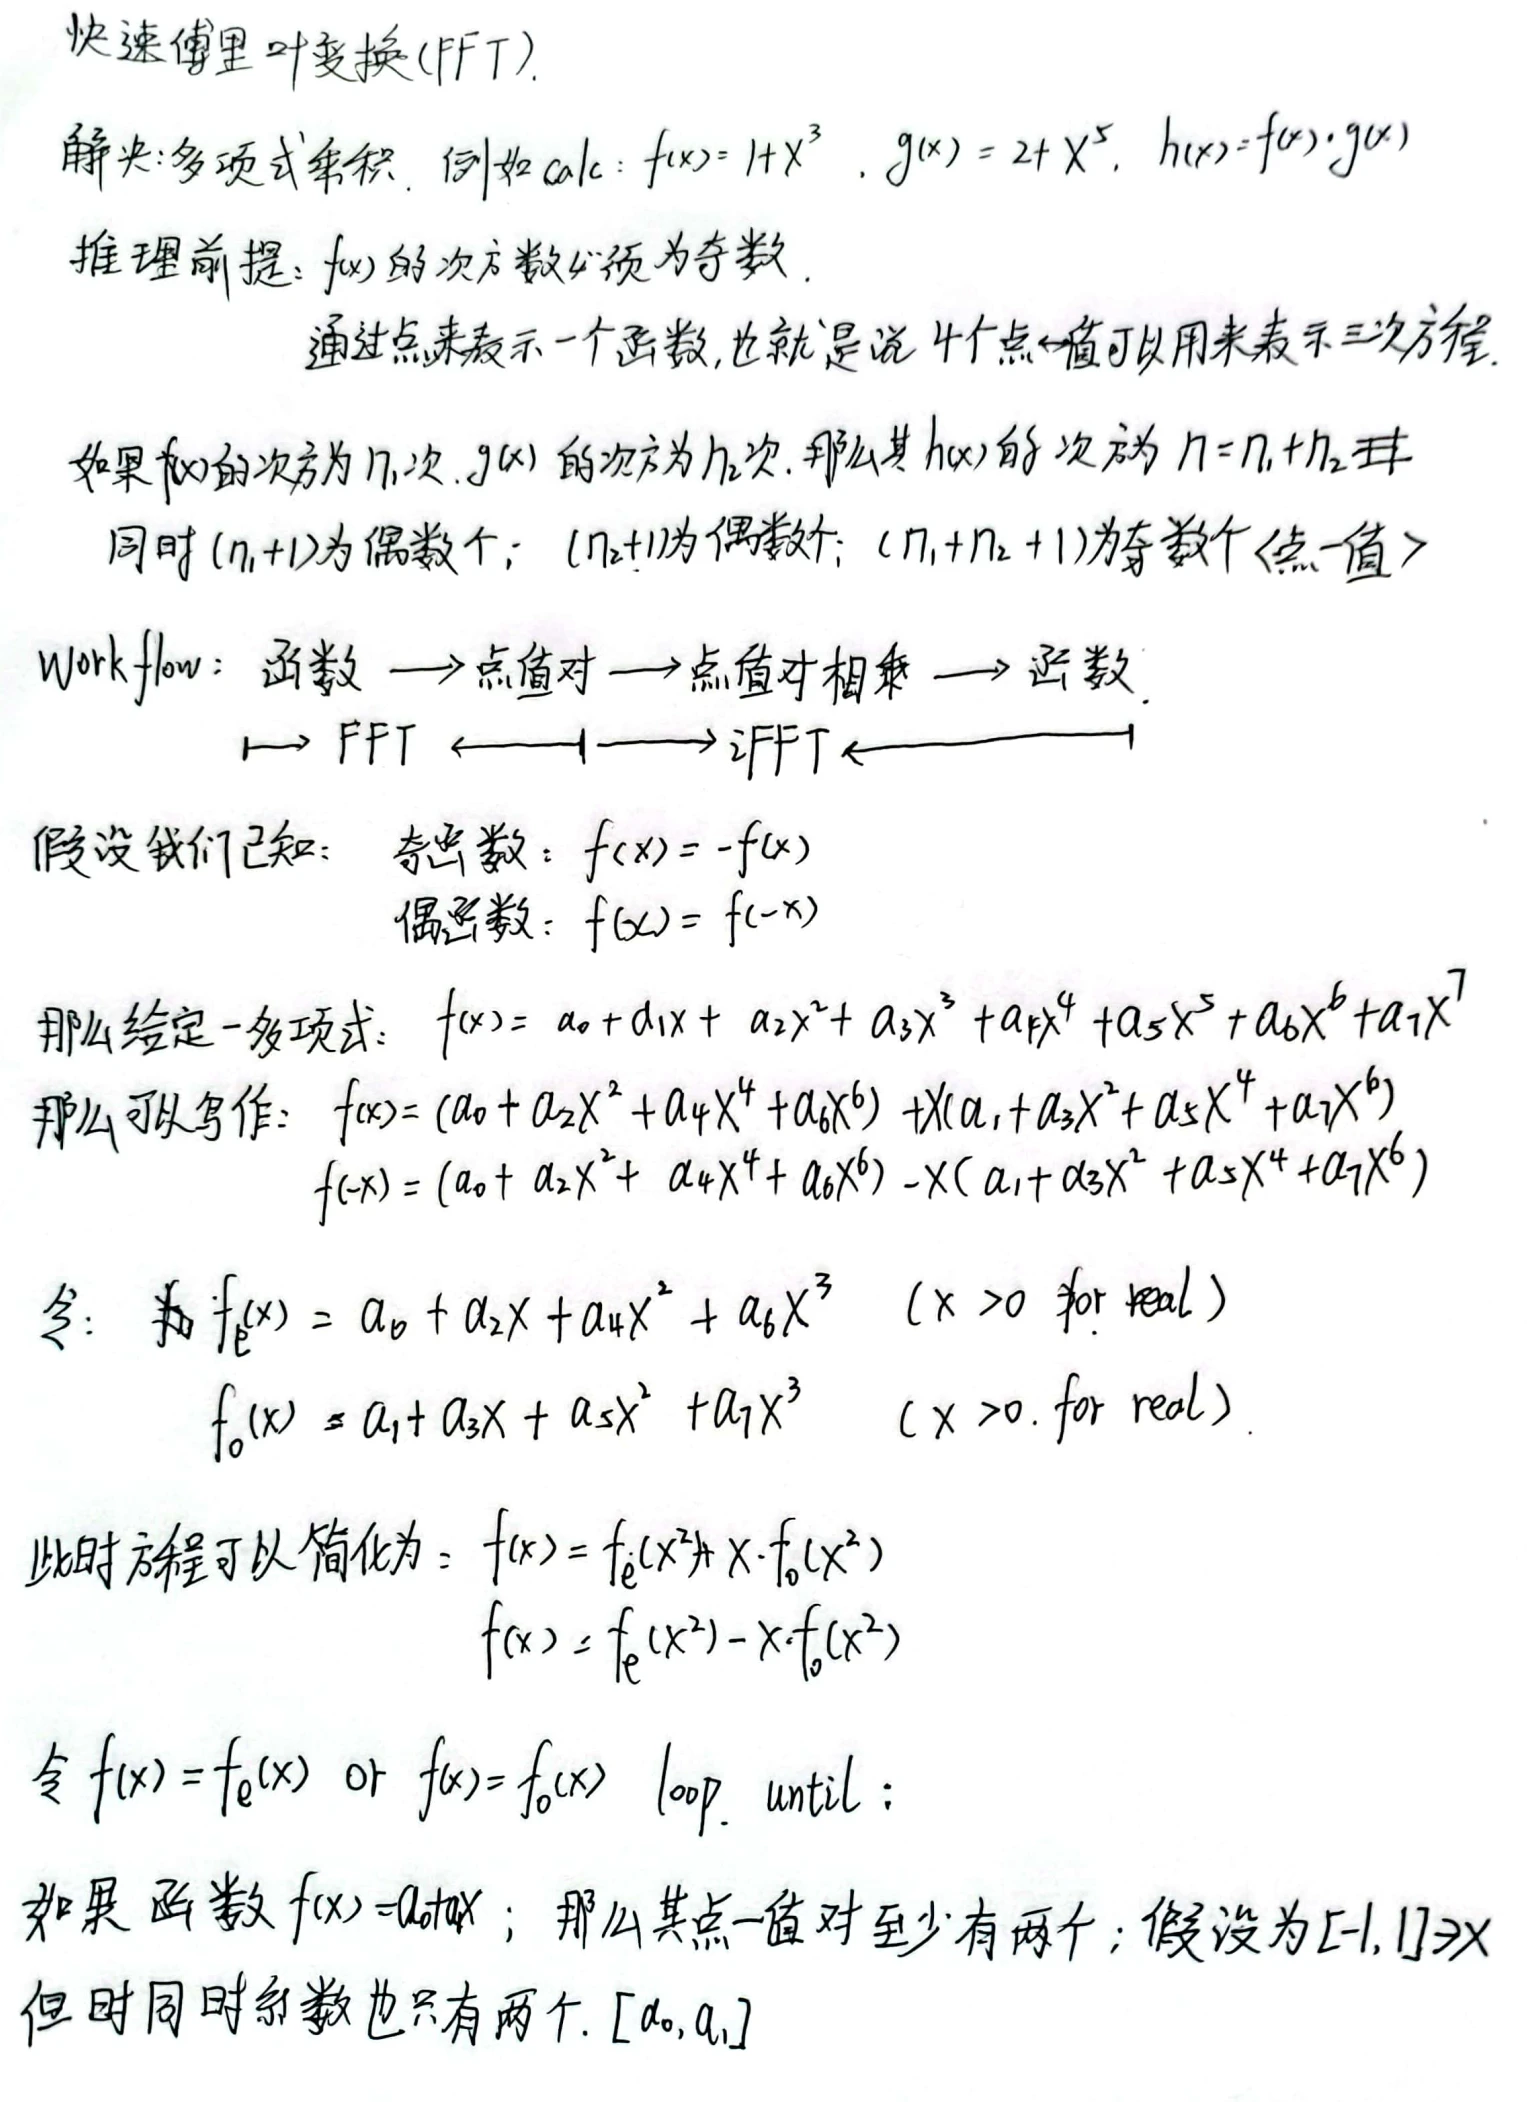 快速傅里叶变换(FFT).
解决:多项式乘积. 例如 calc: f(x)=1+x³ , g(x)=2+x⁵, h(x)=f(x)·g(x)
推理前提: f(x)的次方数必须为奇数.
通过点来表示一个函数,也就是说 4个点↔值可以用来表示三次方程.
如果f(x)的次方为n₁次.g(x)的次方为n₂次.那么其h(x)的次方为 n=n₁+n₂
同时(n₁+1)为偶数个; (n₂+1)为偶数个; (n₁+n₂+1)为奇数个<点-值>
Workflow: 函数 → 点值对 → 点值对相乘 → 函数.
↦ FFT ← → iFFT ←
假设我们已知: 奇函数: f(x)=-f(x)
偶函数: f(x)=f(-x)
那么给定一多项式: f(x)= a₀+a₁x+ a₂x²+ a₃x³+a₄x⁴+a₅x⁵+a₆x⁶+a₇x⁷
那么可以写作: f(x)=(a₀+a₂x²+a₄x⁴+a₆x⁶)+x(a₁+a₃x²+a₅x⁴+a₇x⁶)
f(-x)=(a₀+a₂x²+a₄x⁴+a₆x⁶)-x(a₁+a₃x²+a₅x⁴+a₇x⁶)
令: fₑ(x)= a₀+a₂x+a₄x²+a₆x³ (x>0 for real)
f₀(x)=a₁+a₃x+a₅x²+a₇x³ (x>0. for real).
此时方程可以简化为: f(x)=fₑ(x²)+x·f₀(x²)
f(x)=fₑ(x²)-x·f₀(x²)
令 f(x)=fₑ(x) or f(x)=f₀(x) loop. until:
如果函数f(x)=a₀+a₁x; 那么其点-值对至少有两个;假设为[-1,1]∋x
但时同时系数也只有两个.[a₀,a₁]